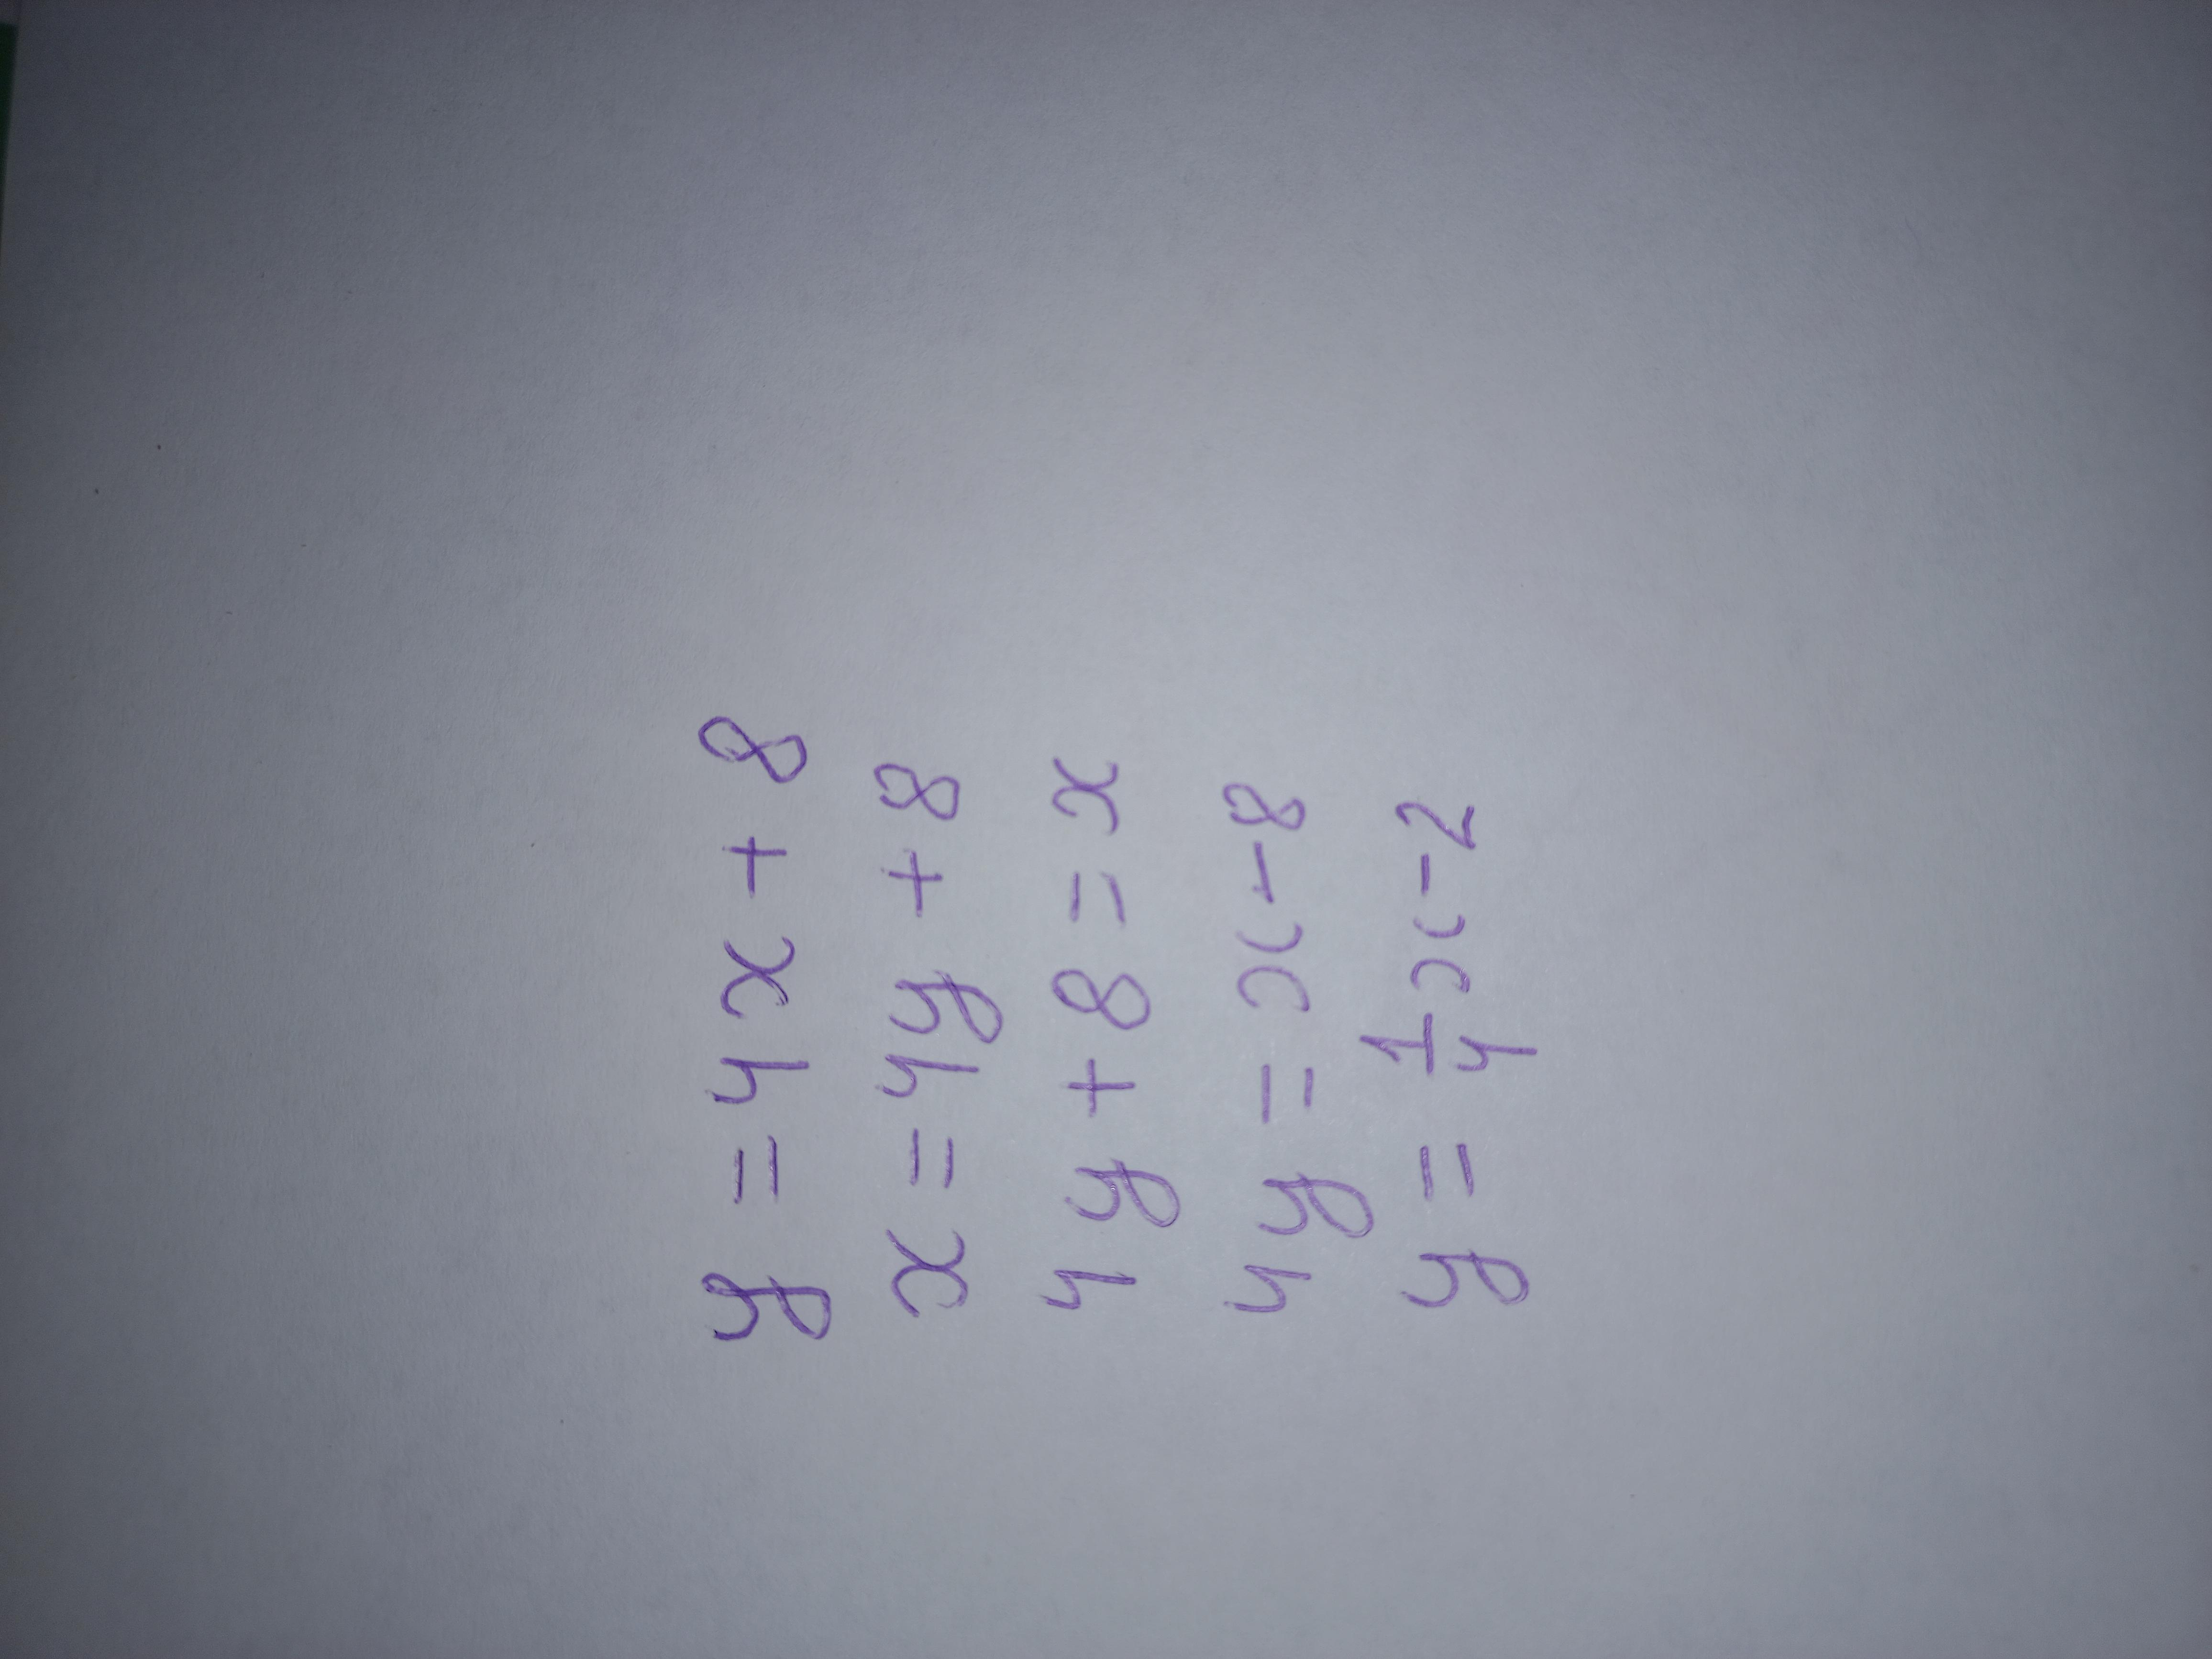 y = 4x + 8
x = 4y + 8
4y + 8 = x
4y = x - 8
y = 1/4 x - 2